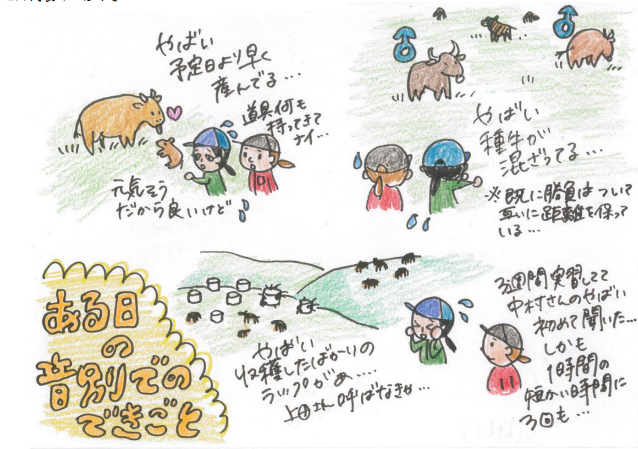 やばい
予定日より早く
産んでる…
道具何も
持ってきて
ナイ…
元気そう
だから良いけど
やばい
種牛が
混ざってる…
※既に勝負はついて
互いに距離を保って
いる…
ある日
の
音別での
できごと
やばい
収穫したばかりの
ラップがぁ….
呼ばなきゃ…
3週間実習してて
中村さんのやばい
初めて聞いた…
しかも
1時間の
短かい時間に
3回も…